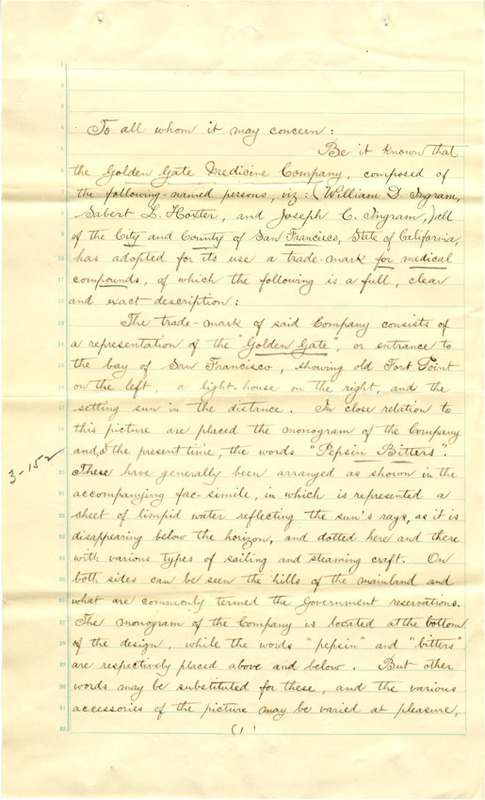 To all whom it may concern:
Be it known that
the Golden Gate Medicine Company, composed of
the following-named persons, viz: (William D. Ingram,
Sabert L. Hoxter, and Joseph C. Ingram,) all
of the City and County of San Francisco, State of California,
has adopted for its use a trade-mark for medical
compounds, of which the following is a full, clear
and exact description:
The trade-mark of said Company consists of
a representation of the "Golden Gate", or entrance to
the bay of San Francisco, showing old Fort Point
on the left, a light-house on the right, and the
setting sun in the distance. In close relation to
this picture are placed the monogram of the Company
and, the present time, the words "Pepsin Bitters".
3-152
These have generally been arranged as shown in the
accompanying fac-simile, in which is represented a
sheet of limpid water reflecting the sun's rays, as it is
disappearing below the horizon, and dotted here and there
with various types of sailing and steaming craft. On
both sides can be seen the hills of the mainland and
what are commonly termed the Government reservations.
The monogram of the Company is located at the bottom
of the design, while the words "pepsin" and "bitters"
are respectively placed above and below. But other
words may be substituted for these, and the various
accessories of the picture may be varied at pleasure,
(1)